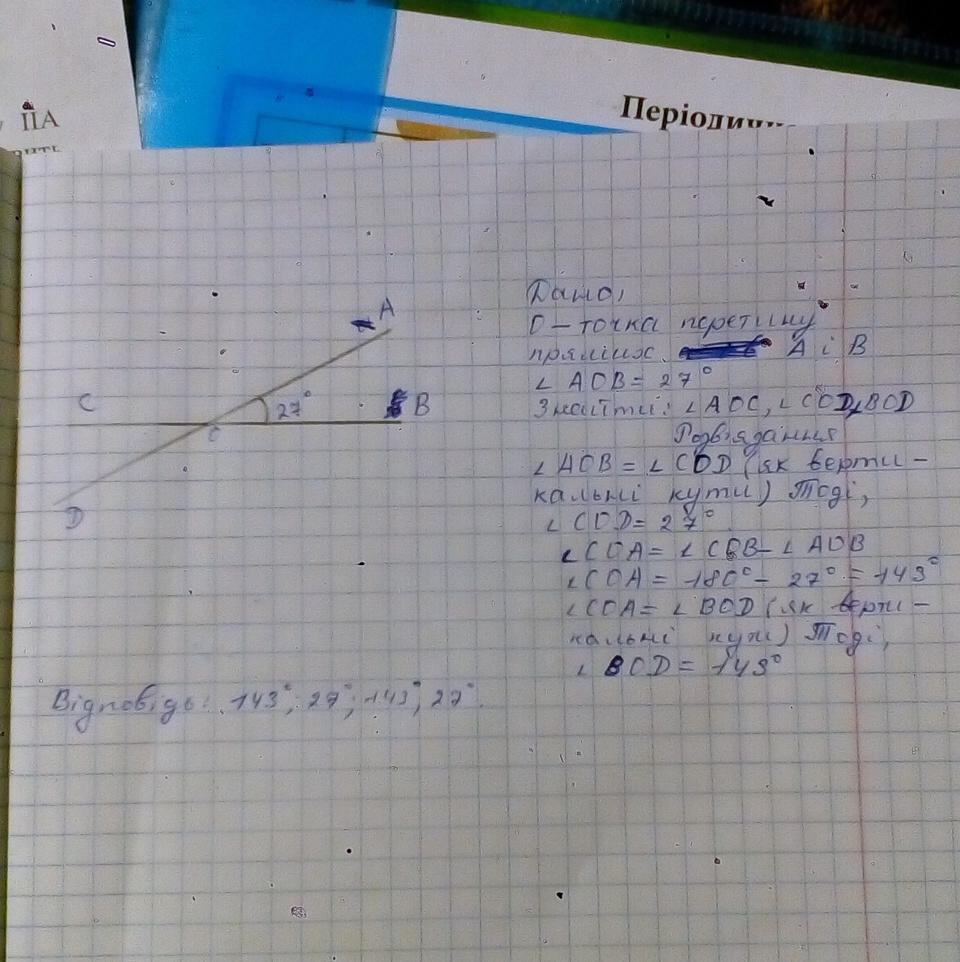 ПА
Періодичн
A
C
27°
B
O
D
Дано,
О – точка перетину
прямінх A i B
∠ AOB = 27°
Знайти: ∠AOC, ∠COD, BOD
Розвязання
∠ AOB = ∠ COD (як верти –
кальні кути) Тоді,
∠ COD = 27°
∠COA = ∠COB – ∠ AOB
∠COA = 180° – 27° = 143°
∠COA = ∠ BOD (як верти –
кальні кути) Тоді,
∠ BOD = 143°
Відповідь: 143°; 27°; 143°, 27°.